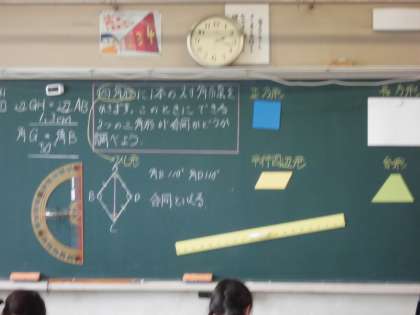 辺GH=辺AB
角G=角B
四角形に1本の対角線を
ひきます。このときにできる
2つの三角形が合同かどうか
調べよう。
正方形
長方形
ひし形
平行四辺形
台形
A
B
D
C
角B110° 角D110°
合同といえる